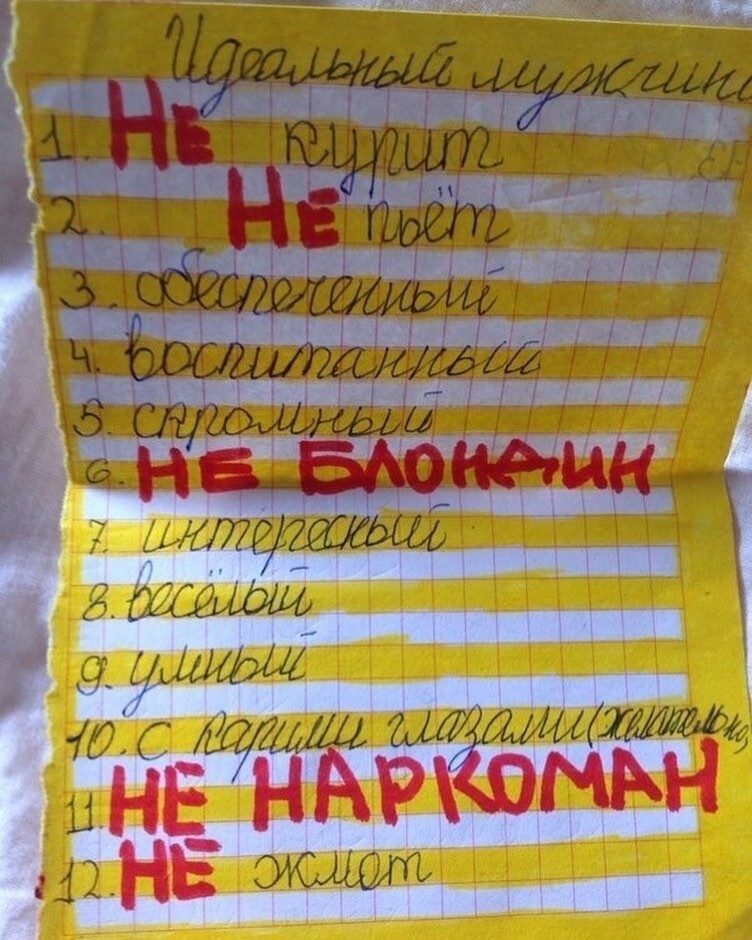 Идеальный мужчина
1. НЕ курит
2. НЕ пьёт
3. обеспеченный
4. воспитанный
5. скромный
6. НЕ БЛОНДИН
7. интересный
8. весёлый
9. умный
10. с карими глазами (желательно)
11 НЕ НАРКОМАН
12. НЕ жмот